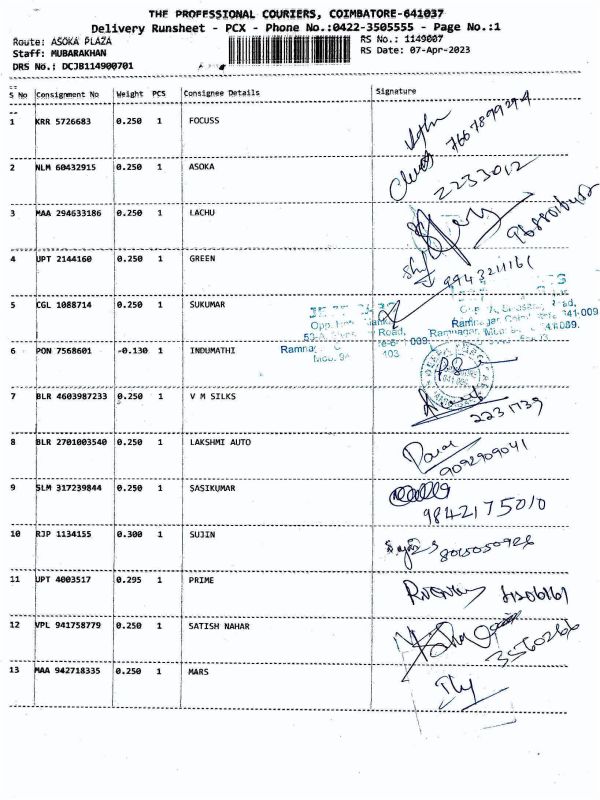 THE PROFESSIONAL COURIERS, COIMBATORE-641037
Delivery Runsheet - PCX - Phone No.:0422-3505555 - Page No.:1
Route: ASOKA PLAZA RS No.: 1149007
Staff: MUBARAKHAN RS Date: 07-Apr-2023
DRS No.: DCJB114900701
S No Consignment No Weight PCS Consignee Details Signature
1 KRR 5726683 0.250 1 FOCUSS
2 NLM 60432915 0.250 1 ASOKA 2233012
3 MAA 294633186 0.250 1 LACHU
4 UPT 2144160 0.250 1 GREEN 9943211161
5 CGL 1088714 0.250 1 SUKUMAR
6 PON 7568601 -0.130 1 INDUMATHI
7 BLR 4603987233 0.250 1 V M SILKS 2231739
8 BLR 2701003540 0.250 1 LAKSHMI AUTO 9092909041
9 SLM 317239844 0.250 1 SASIKUMAR 9842175010
10 RJP 1134155 0.300 1 SUJIN 8015050926
11 UPT 4003517 0.295 1 PRIME
12 VPL 941758779 0.250 1 SATISH NAHAR 3560266
13 MAA 942718335 0.250 1 MARS